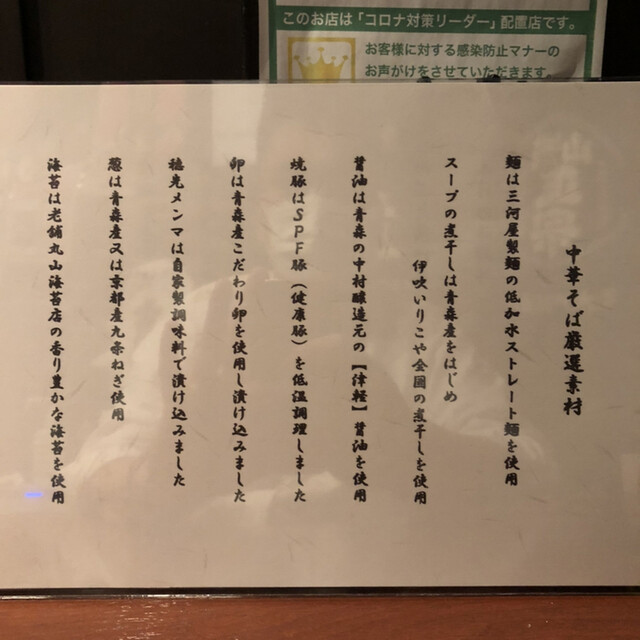 このお店は「コロナ対策リーダー」配置店です。
お客様に対する感染防止マナーの
お声がけをさせていただきます。
中華そば厳選素材
麺は三河屋製麺の低加水ストレート麺を使用
スープの煮干しは青森産をはじめ
伊吹いりこや全国の煮干しを使用
醤油は青森の中村醸造元の【津軽】醤油を使用
焼豚はSPF豚（健康豚）を低温調理しました
卵は青森産こだわり卵を使用し漬け込みました
穂先メンマは自家製調味料で漬け込みました
葱は青森産又は京都産九条ねぎ使用
海苔は老舗丸山海苔店の香り豊かな海苔を使用